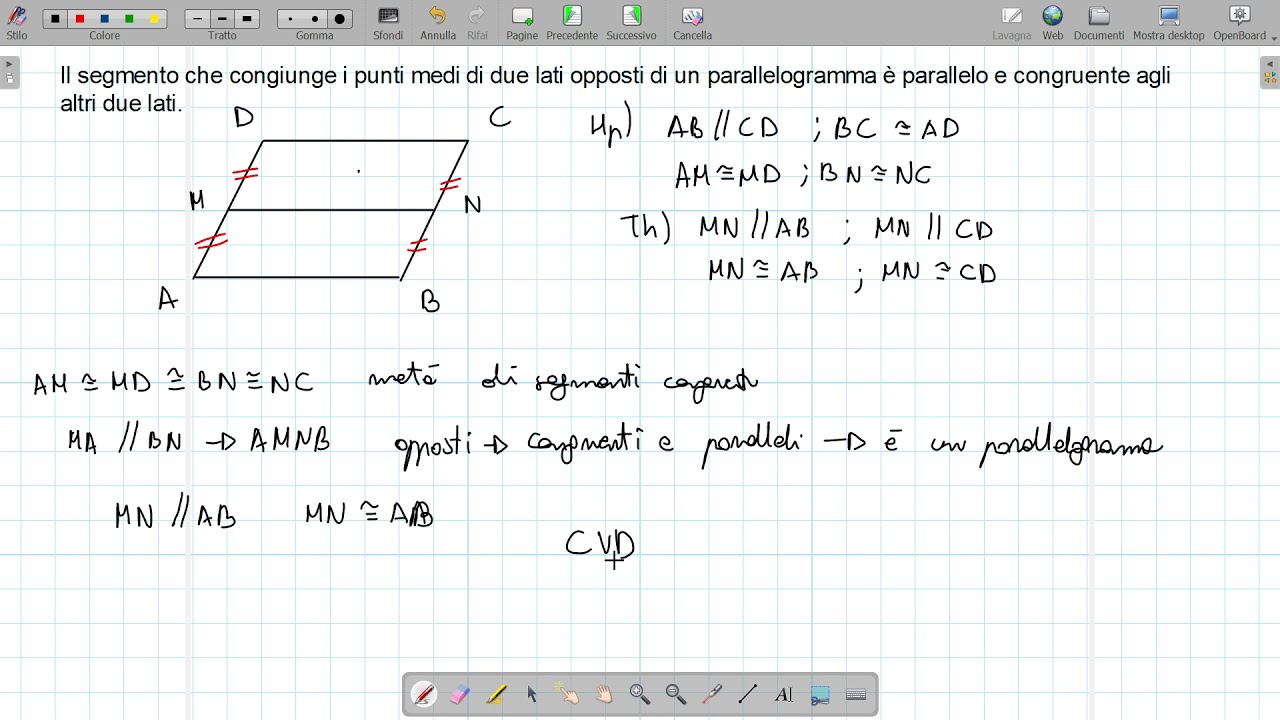 Stilo Colore Tratto Gomma Sfondi Annulla Rifai Pagine Precedente Successivo Cancella Lavagna Web Documenti Mostra desktop OpenBoard
Il segmento che congiunge i punti medi di due lati opposti di un parallelogramma è parallelo e congruente agli
altri due lati.
D C
M N
A B
Hp) AB // CD ; BC ≅ AD
AM ≅ MD ; BN ≅ NC
Th) MN // AB ; MN // CD
MN ≅ AB ; MN ≅ CD
AM ≅ MD ≅ BN ≅ NC metà di segmenti
MA // BN → AMNB opposti → e paralleli → è un
MN // AB MN ≅ AB
CVD
AI